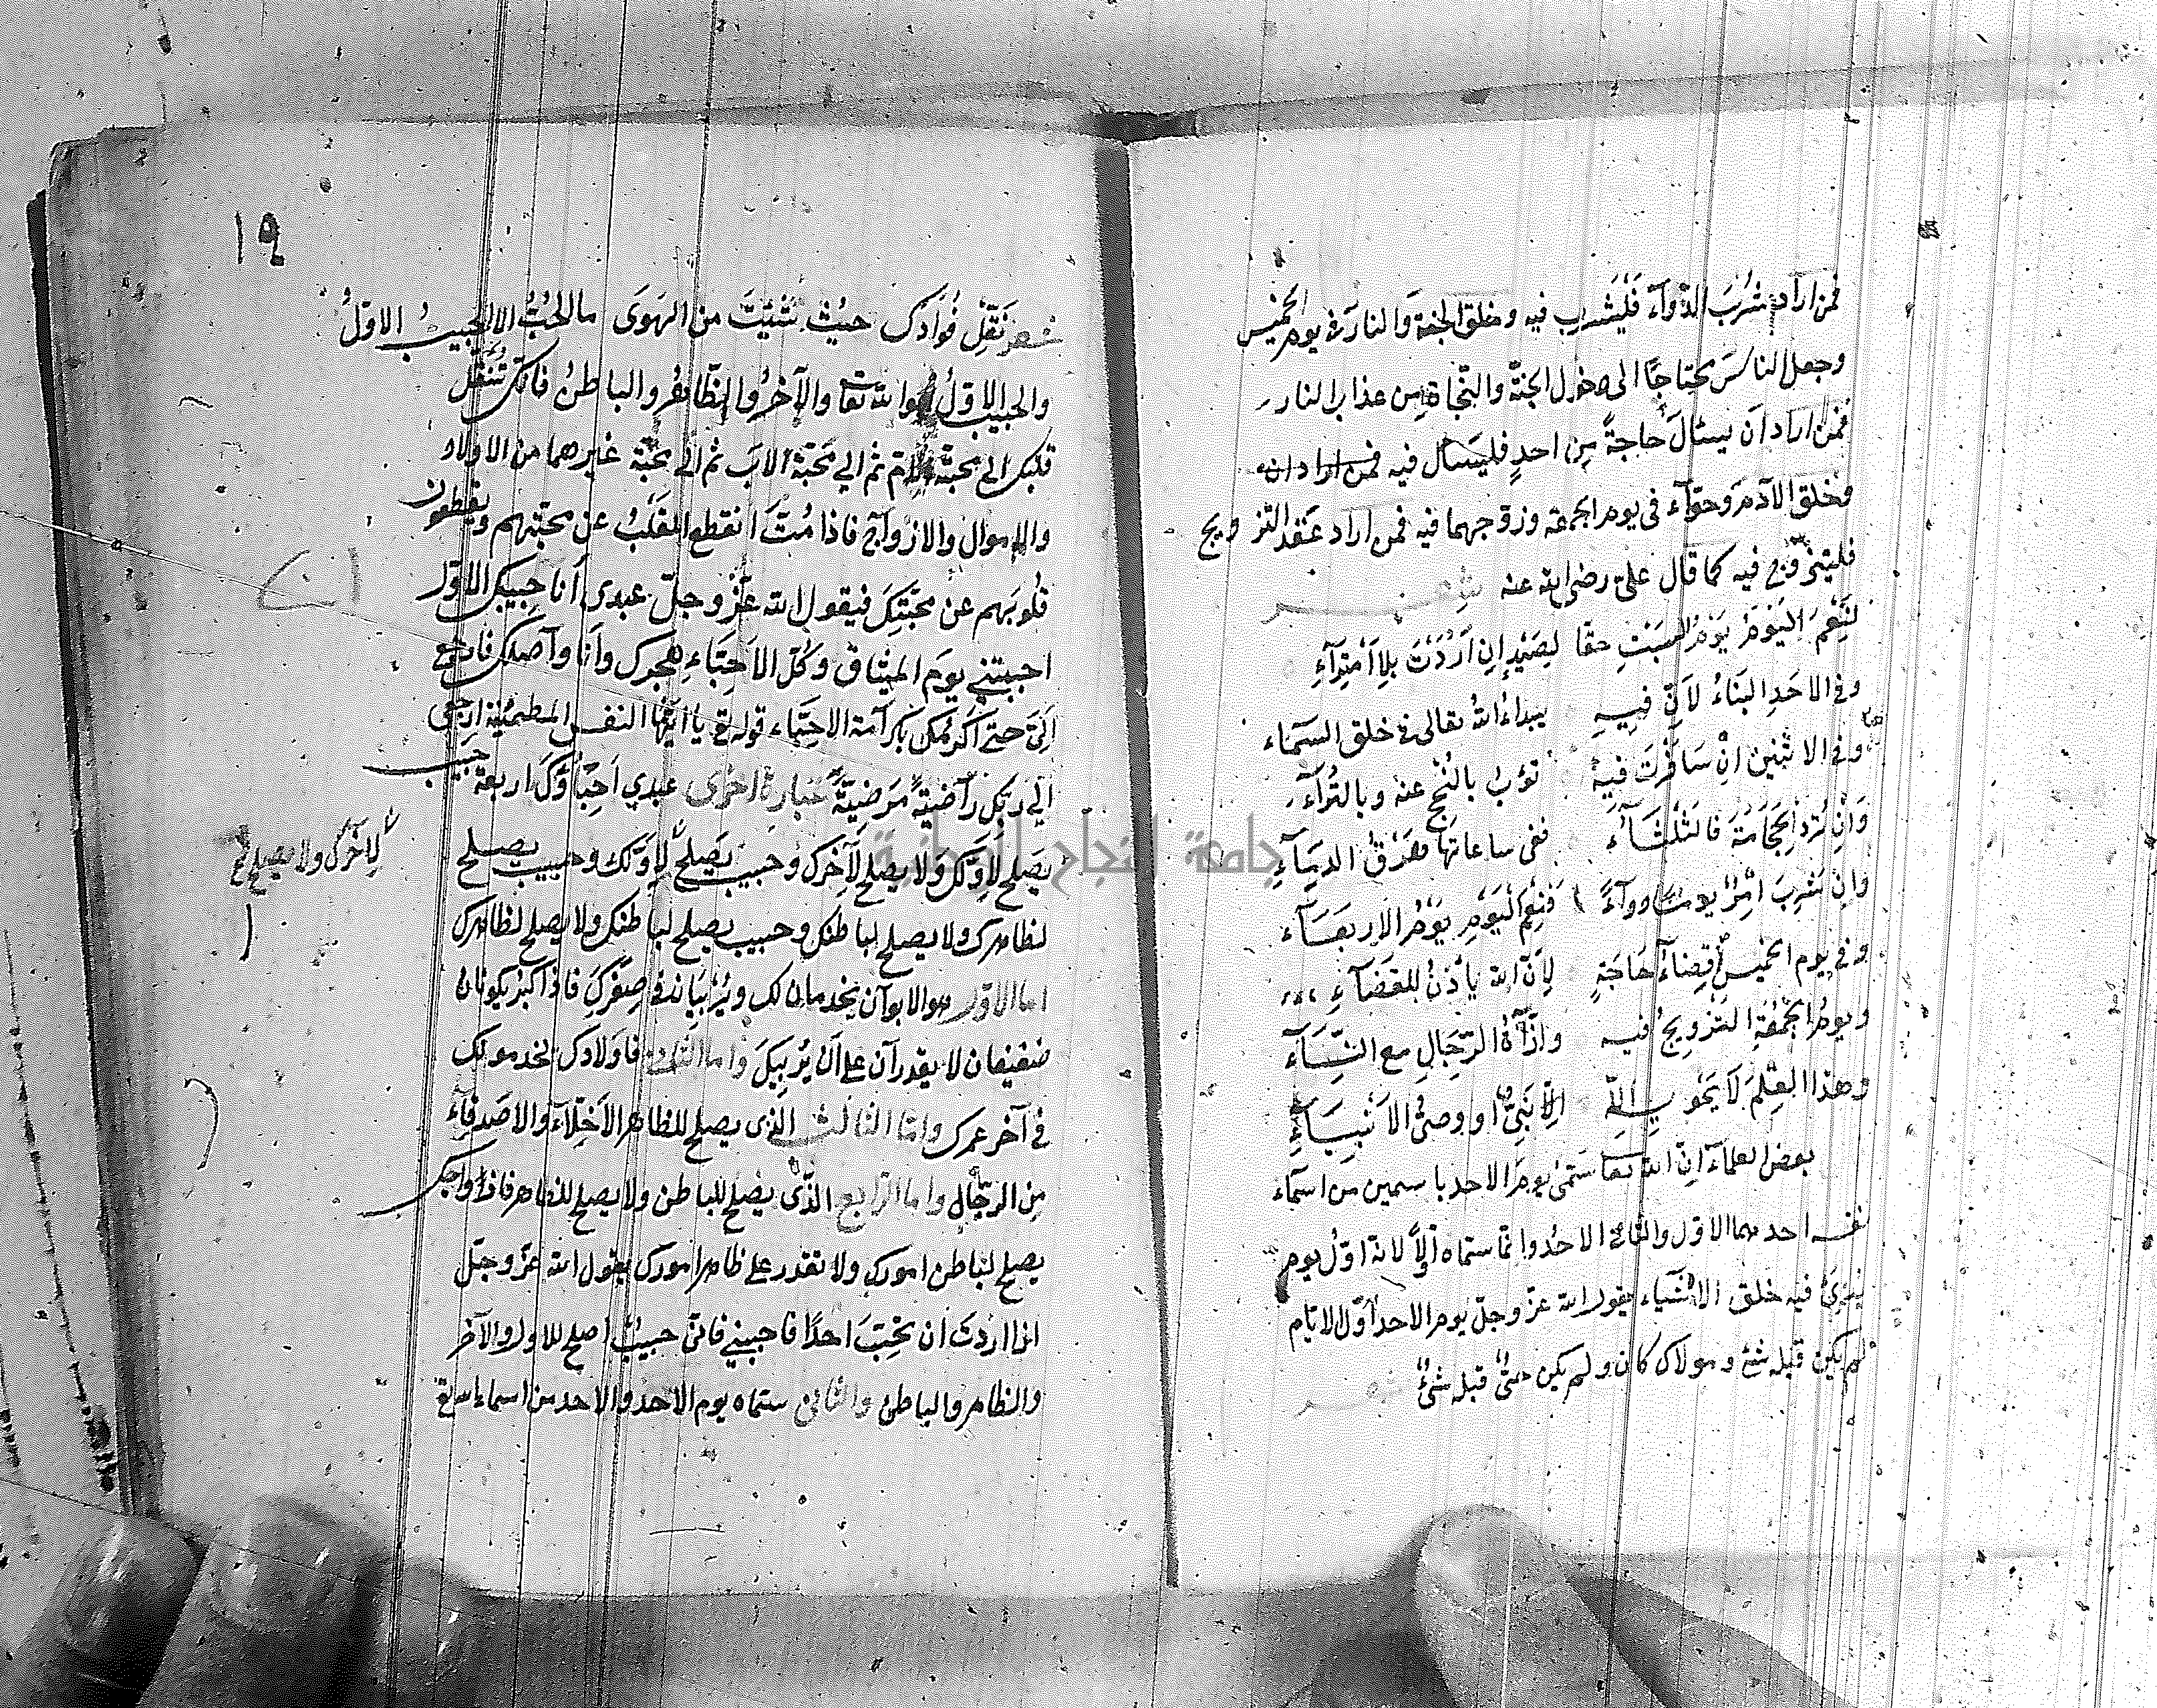 فمن اراد شُرْبَ الدّوآء فَلْيَشرب فيه وخلق الجنة والنار فى يوم الخميس
وجعل الناس محتاجًا الى دخول الجنّة والنّجاة مِن عذاب النار
فمن اراد اَن يسئالَ حاجةً مِن احدٍ فليسئال فيه فمن اراد ان
وخلق الآدم وحوّآء فى يوم الجمعة وزوّجهما فيه فمن اراد عَقد التزويج
فليتزوّج فيه كما قال علىّ رضى الله عنه شعر
لَنِعْمَ اليَوْمُ يَوْمُ السَبْتِ حقا لِصَيْدٍ اِن اَرَدْتَ بِلا اَمْتِرَآءِ
وفى الاحَدِ البَنَاءُ لاَنّ فيه يبداءُ اللهُ تعالى فى خلق السَمَاء
وفى الاثنين انْ سَافَرْتَ فيه تؤب بالنُجح عنه وبالثرآء
وَاِنْ تُرِد الحِجَامَةَ فالثلثآء ففى ساعاتها هَرْقُ الدِمَآءِ
وان شَرِبَ امرؤ يومًا دوآءً فَنِعْمَ اليَوْمِ يَوْمُ الاربعَآء
وفى يوم الخميس قِضآءُ حَاجَةٍ لِاَنّ الله يأذنُ للقضَآءِ
ويومُ الجُمْعَةِ التَزْوِيجُ فيه ولذّآةُ الرّجَالِ مع النّسَآء
وهذا العِلْمَ لاَ يَحْوِيهِ اِلاّ نَبِىٌّ او وصىُّ الاَنْبِيَآءِ
بعض العلمآء انّ الله تعا سَمّى يوم الاحد باسمين من اسمآء
نفسه احدهما الاول والثانى الاحدُ وانّما سمّاه اوّلاً لانّه اوّل يوم
فيه خلق الاشيآء يقول الله عزّ وجلّ يوم الاحد اوّل الايّام
لم يكن قبله شئ ومولاك كان ولم يكن شئٌ قبله شئٌ شعر
١٩
شعر نَقّل فُوَآدَكَ حيثُ شئتَ من الهَوَى ما الحُبُّ الا للحبيبِ الاوّلُ
والحبيب الاوّلُ هو الله تعا والآخرُ والظّاهرُ والباطنُ فانّك تُنقّل
قلبك الى محبّة الامّ ثم الى محبّة الاَبِ ثم الى محبّة غيرهما من الاولاد
والاموال والازْوَاج فاذا مُتَّ انقطع القلبُ عن محبّتهم ويقطعون
قلوبَهم عن محبّتِكَ فيقول الله عَزّ وجلّ عبدى اَنا حبيبك الاوّل
احببتنى يومَ الميثاق وكُلّ الاحِبّاءِ هجرك وأنا وآصلك فارجع
اِلَىّ حتى اكرمك بكرآمة الاحبّاء قوله تع يا ايّتها النفس المطمئنّة ارجعى
الى ربّك رآضيةً مَرضيّةً عبارة اخرى عبدى اَحِبّآؤكَ اربعة حبيب
يَصلح لاَوّلك ولا يصلح لآخِرك وحبيب يَصلحُ لاوّلك وحبيب يصلح
لآخرك ولا يصلح
لظاهرك ولا يصلح لباطنك وحبيب يصلح لباطنك ولا يصلح لظاهرك
اما الاوّل هو الابوآن يخدمان لك ويُرَبيّانك فى صِغَرِكَ فاذا كبر يكونان
ضعيفان لا يقدرآن على اَنْ يُرَبّيَكَ واما الثانى فاَولادك تخدمو لك
فى آخر عمرك وامّا الثالث الذى يصلح للظاهر الاَخلآء والاصدقآء
مِن الرجال واما الرّابع الذّى يصلح للباطن ولا يصلح للظاهر فازواجك
يصلح لباطن امورك ولا تقدر على ظاهر امورك يقول الله عزّ وجلّ
اذا اردتَ ان تُحِبَّ احدًا فاحببنى فانّى حبيبٌ اصلح للاول والآخر
والظاهر والباطن والثانى سمّاه يوم الاحد والاحد من اسماء
جامعة النجاح الوطنية